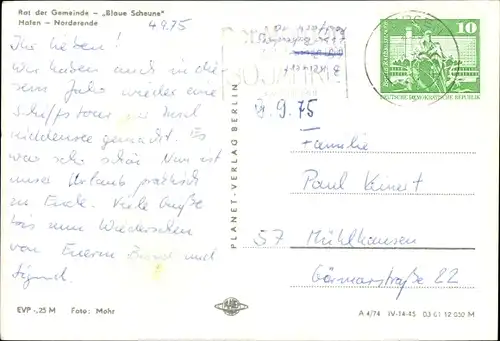 Rat der Gemeinde - „Blaue Scheune"
Hafen - Norderende
4.9.75
Ihr Lieben!
Wir haben auch in die-
sem Jahr wieder eine
Schiffstour zur Insel
Hiddensee gemacht. Es
war sehr schön. Nun ist
unser Urlaub praktisch
zu Ende. Viele Grüße
bis zum Wiedersehen
von Eurem und
Sigrid.
EVP -,25 M Foto: Mohr
PLANET-VERLAG BERLIN
10
DEUTSCHE DEMOKRATISCHE REPUBLIK
9.75
Familie
Paul Keinert
57 Mühlhausen
Görmarstraße 22
A 4/74 IV-14-45 03 01 12 050 M